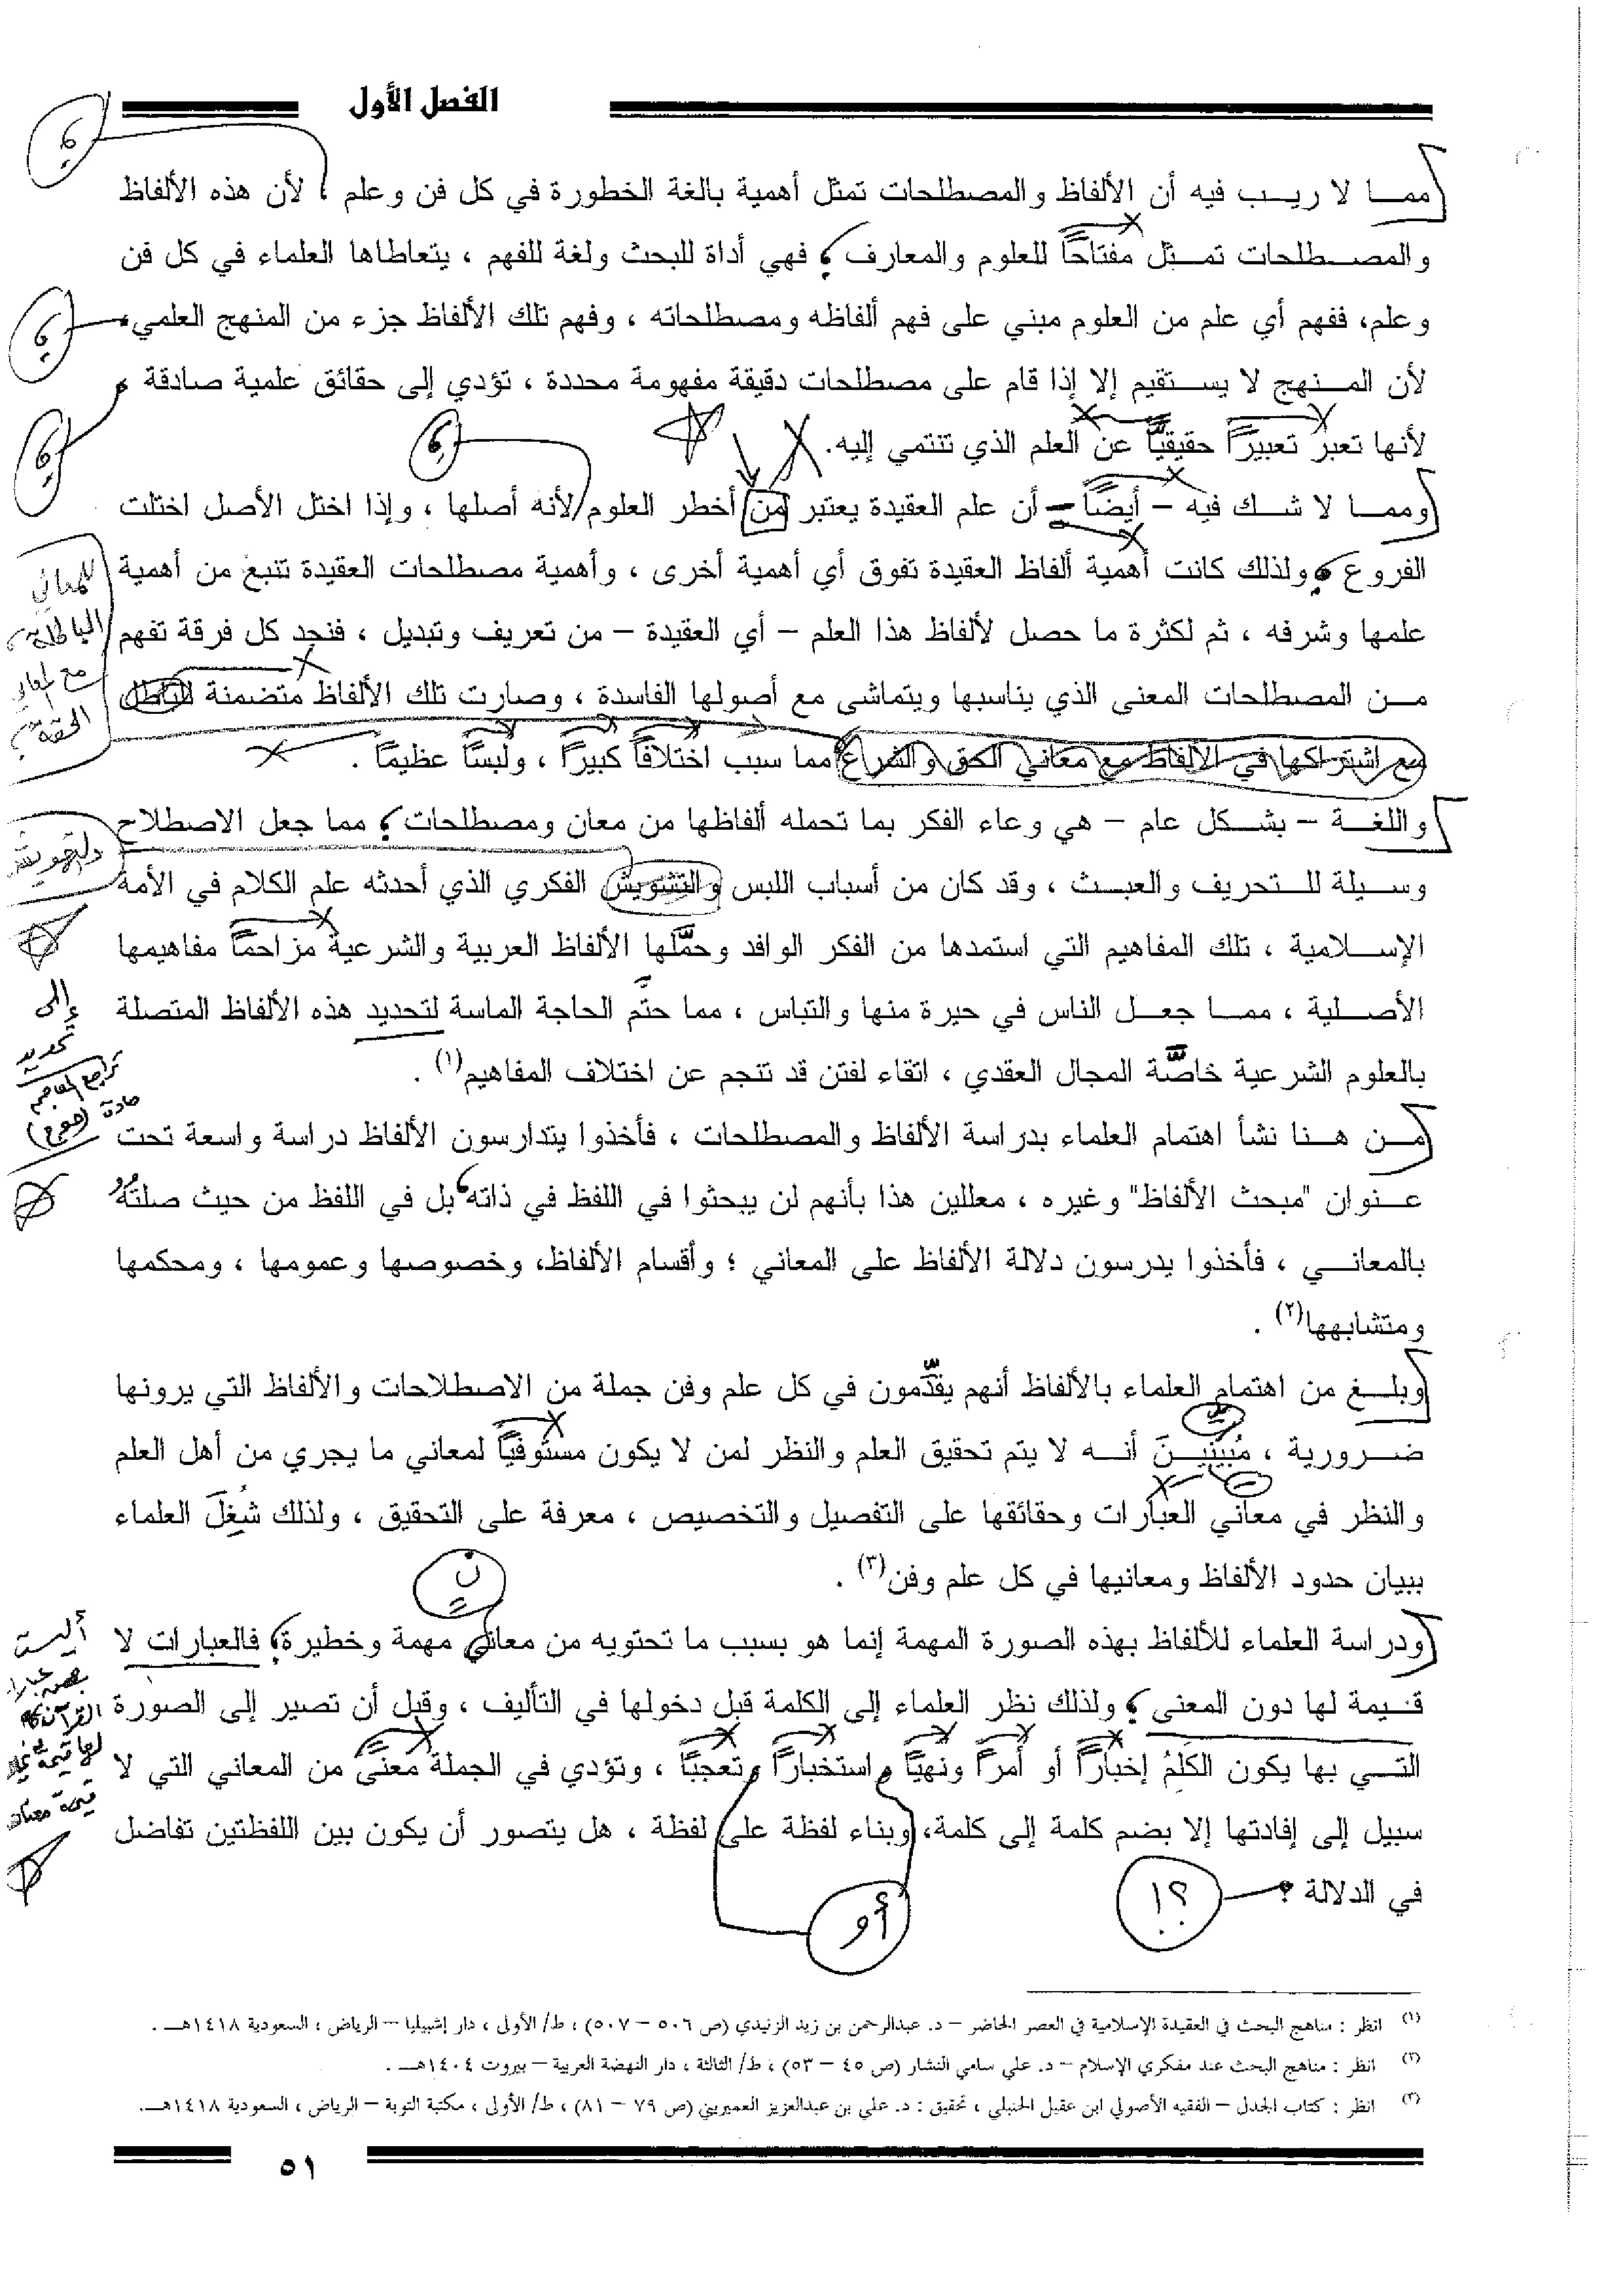 الفصل الأول
مما لا ريب فيه أن الألفاظ والمصطلحات تمثل أهمية بالغة الخطورة في كل فن وعلم ، لأن هذه الألفاظ
والمصطلحات تمثل مفتاحاً للعلوم والمعارف ، فهي أداة للبحث ولغة للفهم ، يتعاطاها العلماء في كل فن
وعلم، ففهم أي علم من العلوم مبني على فهم ألفاظه ومصطلحاته ، وفهم تلك الألفاظ جزء من المنهج العلمي،
لأن المنهج لا يستقيم إلا إذا قام على مصطلحات دقيقة مفهومة محددة ، تؤدي إلى حقائق علمية صادقة ،
لأنها تعبر تعبيراً حقيقيًّا عن العلم الذي تنتمي إليه.
ومما لا شك فيه – أيضاً – أن علم العقيدة يعتبر من أخطر العلوم لأنه أصلها ، وإذا اختل الأصل اختلت
الفروع ، ولذلك كانت أهمية ألفاظ العقيدة تفوق أي أهمية أخرى ، وأهمية مصطلحات العقيدة تنبع من أهمية
للمعاني
علمها وشرفه ، ثم لكثرة ما حصل لألفاظ هذا العلم – أي العقيدة – من تعريف وتبديل ، فنجد كل فرقة تفهم
الباطلة
من المصطلحات المعنى الذي يناسبها ويتماشى مع أصولها الفاسدة ، وصارت تلك الألفاظ متضمنة للباطل
مع
الحقة
مع اشتراكها في الألفاظ مع معاني الحق والشرع مما سبب اختلافاً كبيراً ، ولبساً عظيماً .
واللغة – بشكل عام – هي وعاء الفكر بما تحمله ألفاظها من معان ومصطلحات ، مما جعل الاصطلاح
وسيلة للتحريف والعبث ، وقد كان من أسباب اللبس والتشويش الفكري الذي أحدثه علم الكلام في الأمة
الإسلامية ، تلك المفاهيم التي استمدها من الفكر الوافد وحمَّلها الألفاظ العربية والشرعية مزاحماً مفاهيمها
الأصلية ، مما جعل الناس في حيرة منها والتباس ، مما حتَّم الحاجة الماسة لتحديد هذه الألفاظ المتصلة
إلى
تحديد
بالعلوم الشرعية خاصَّة المجال العقدي ، اتقاء لفتن قد تنجم عن اختلاف المفاهيم(١) .
تراجع
مادة
من هنا نشأ اهتمام العلماء بدراسة الألفاظ والمصطلحات ، فأخذوا يتدارسون الألفاظ دراسة واسعة تحت
عنوان "مبحث الألفاظ" وغيره ، معللين هذا بأنهم لن يبحثوا في اللفظ في ذاته، بل في اللفظ من حيث صلتهُ
بالمعاني ، فأخذوا يدرسون دلالة الألفاظ على المعاني ؛ وأقسام الألفاظ، وخصوصها وعمومها ، ومحكمها
ومتشابهها(٢) .
وبلغ من اهتمام العلماء بالألفاظ أنهم يقدِّمون في كل علم وفن جملة من الاصطلاحات والألفاظ التي يرونها
ضرورية ، مُبيِّنينَ أنه لا يتم تحقيق العلم والنظر لمن لا يكون مستوفياً لمعاني ما يجري من أهل العلم
والنظر في معاني العبارات وحقائقها على التفصيل والتخصيص ، معرفة على التحقيق ، ولذلك شُغِلَ العلماء
ببيان حدود الألفاظ ومعانيها في كل علم وفن(٣) .
ن
ودراسة العلماء للألفاظ بهذه الصورة المهمة إنما هو بسبب ما تحتويه من معاني مهمة وخطيرة، فالعبارات لا
أليست
قيمة لها دون المعنى ، ولذلك نظر العلماء إلى الكلمة قبل دخولها في التأليف ، وقبل أن تصير إلى الصورة
القرآن
لها قيمة
التي بها يكون الكَلِمُ إخباراً أو أمراً ونهيًا واستخباراً وتعجبًا ، وتؤدي في الجملة معنًى من المعاني التي لا
قيمة
سبيل إلى إفادتها إلا بضم كلمة إلى كلمة، وبناء لفظة على لفظة ، هل يتصور أن يكون بين اللفظتين تفاضل
في الدلالة ؟
؟!
أو
(١) انظر : مناهج البحث في العقيدة الإسلامية في العصر الحاضر – د. عبدالرحمن بن زيد الزنيدي (ص ٥٠٦ – ٥٠٧) ، ط/ الأولى ، دار إشبيليا – الرياض ، السعودية ١٤١٨هـ .
(٢) انظر : مناهج البحث عند مفكري الإسلام – د. علي سامي النشار (ص ٤٥ – ٥٣) ، ط/ الثالثة ، دار النهضة العربية – بيروت ١٤٠٤هـ .
(٣) انظر : كتاب الجدل – الفقيه الأصولي ابن عقيل الحنبلي ، تحقيق : د. علي بن عبدالعزيز العميريني (ص ٧٩ – ٨١) ، ط/ الأولى ، مكتبة التوبة – الرياض ، السعودية ١٤١٨هـ.
٥١